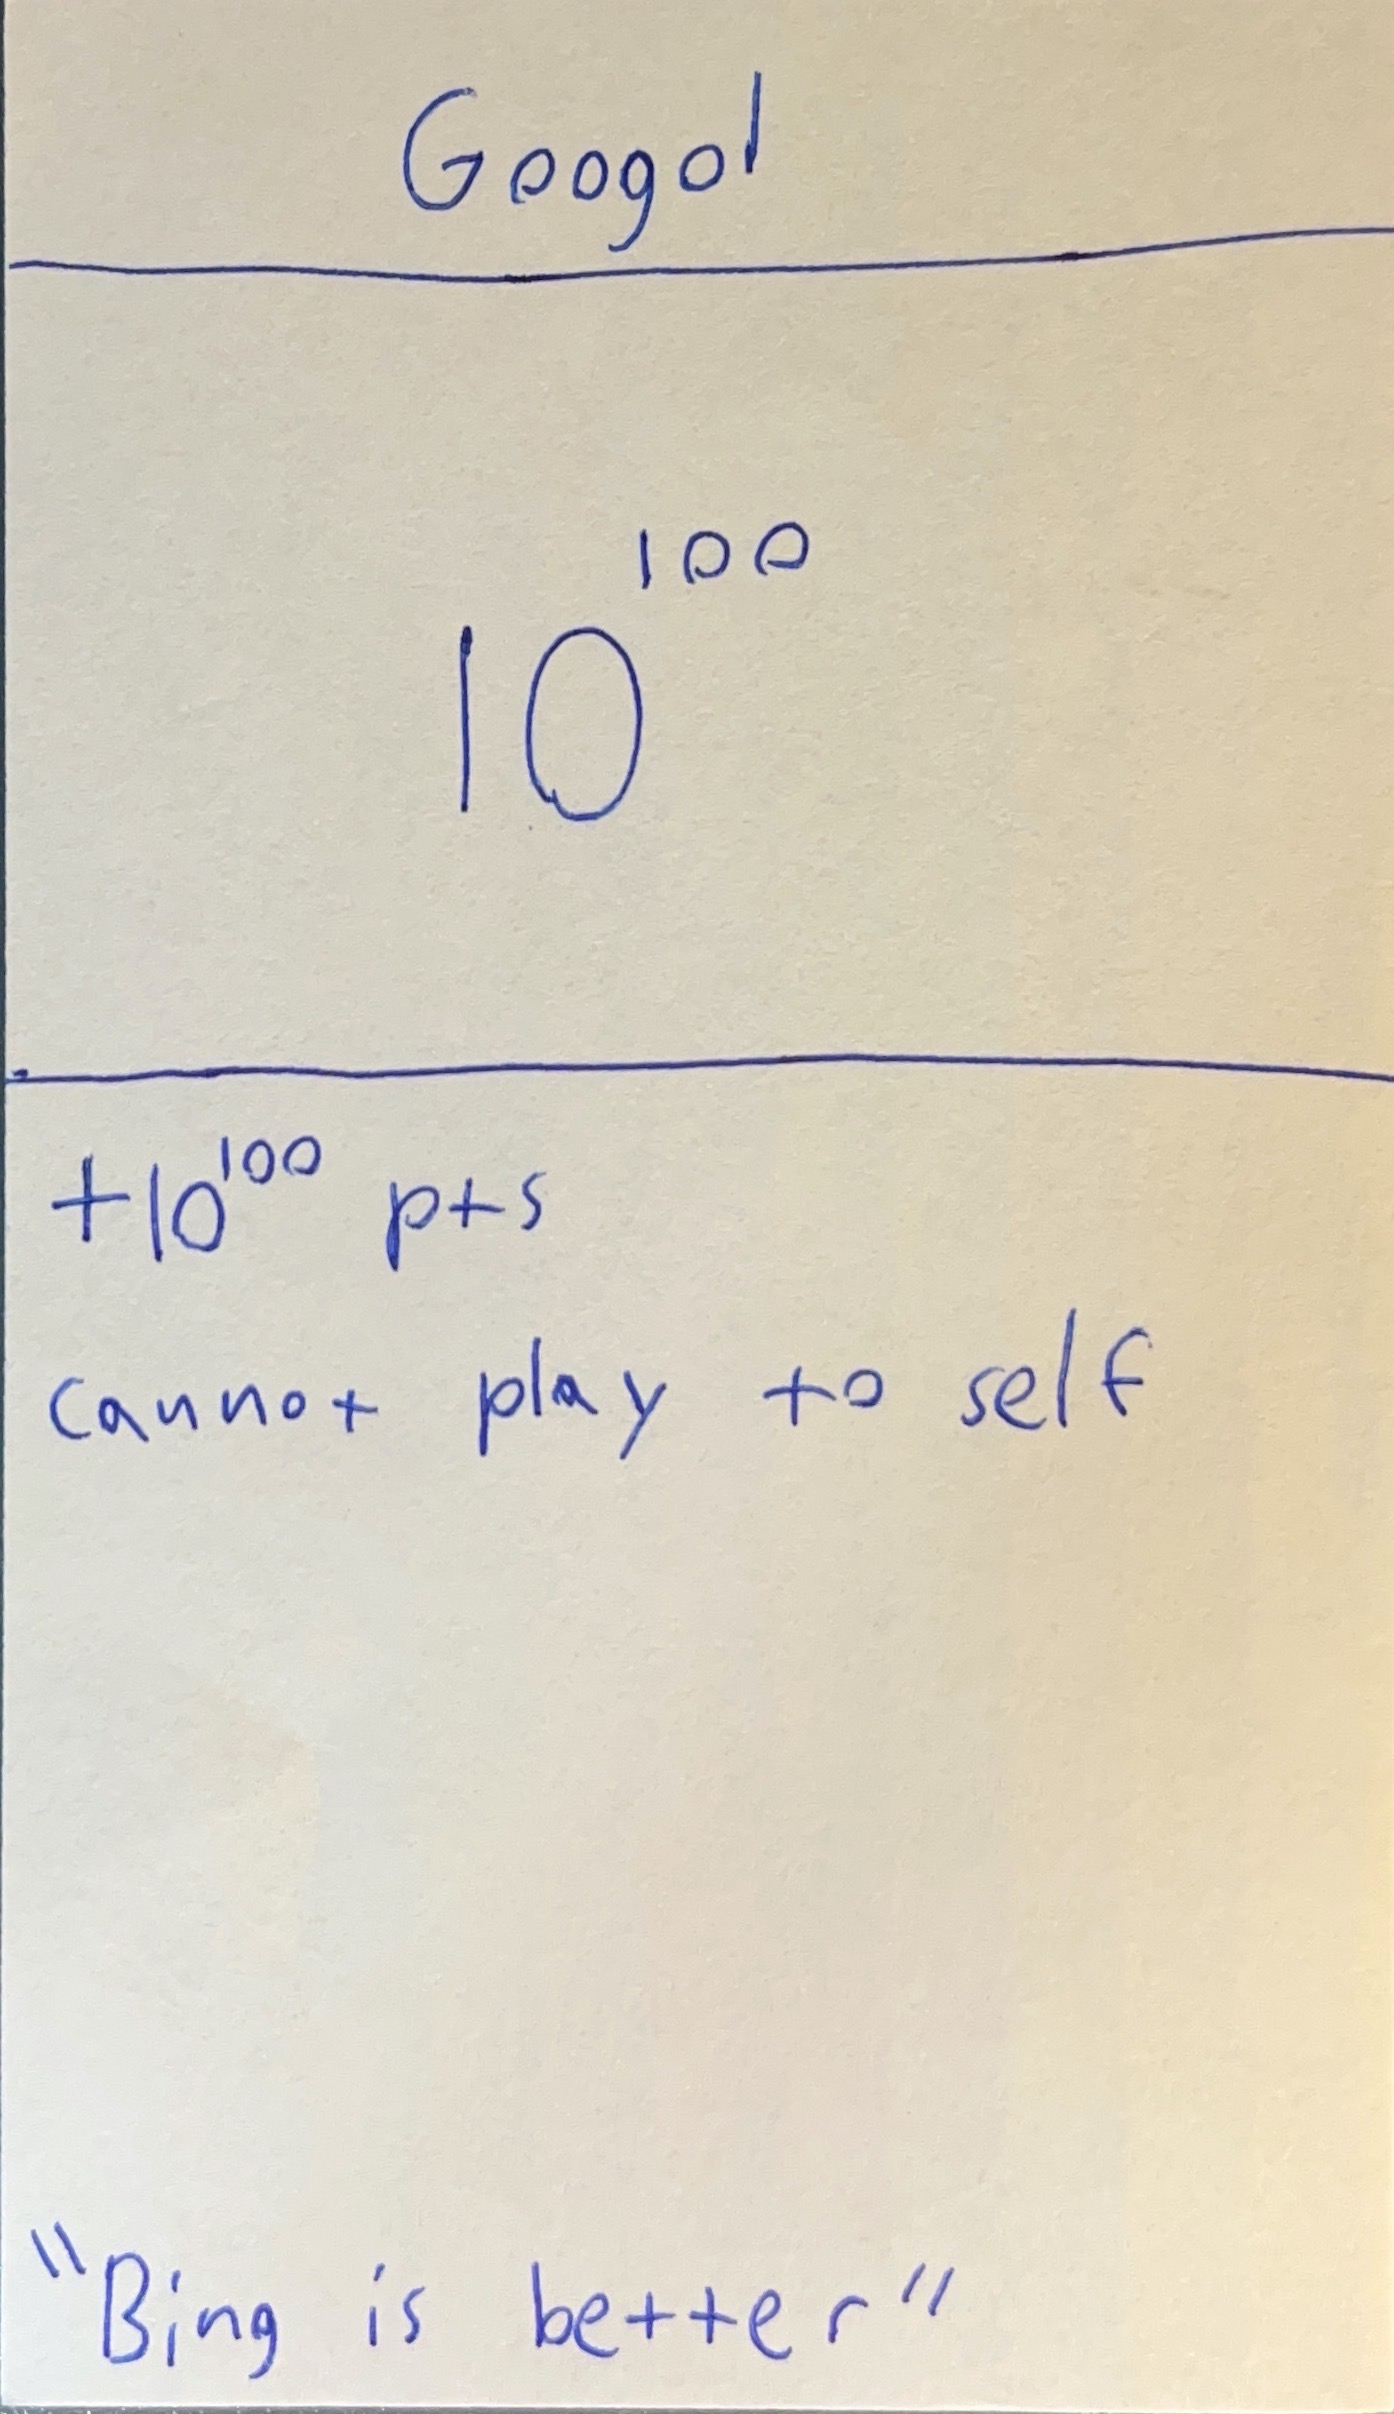 Googol
10¹⁰⁰
+10¹⁰⁰ pts
cannot play to self
"Bing is better"